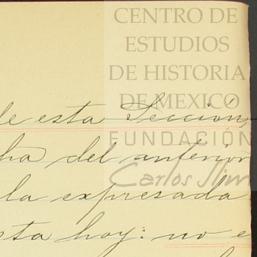 CENTRO DE
ESTUDIOS
DE HISTORIA
DE MEXICO
FUNDACIÓN
Carlos Slim
de esta Sección
del anterior
la expresada
hoy: no e